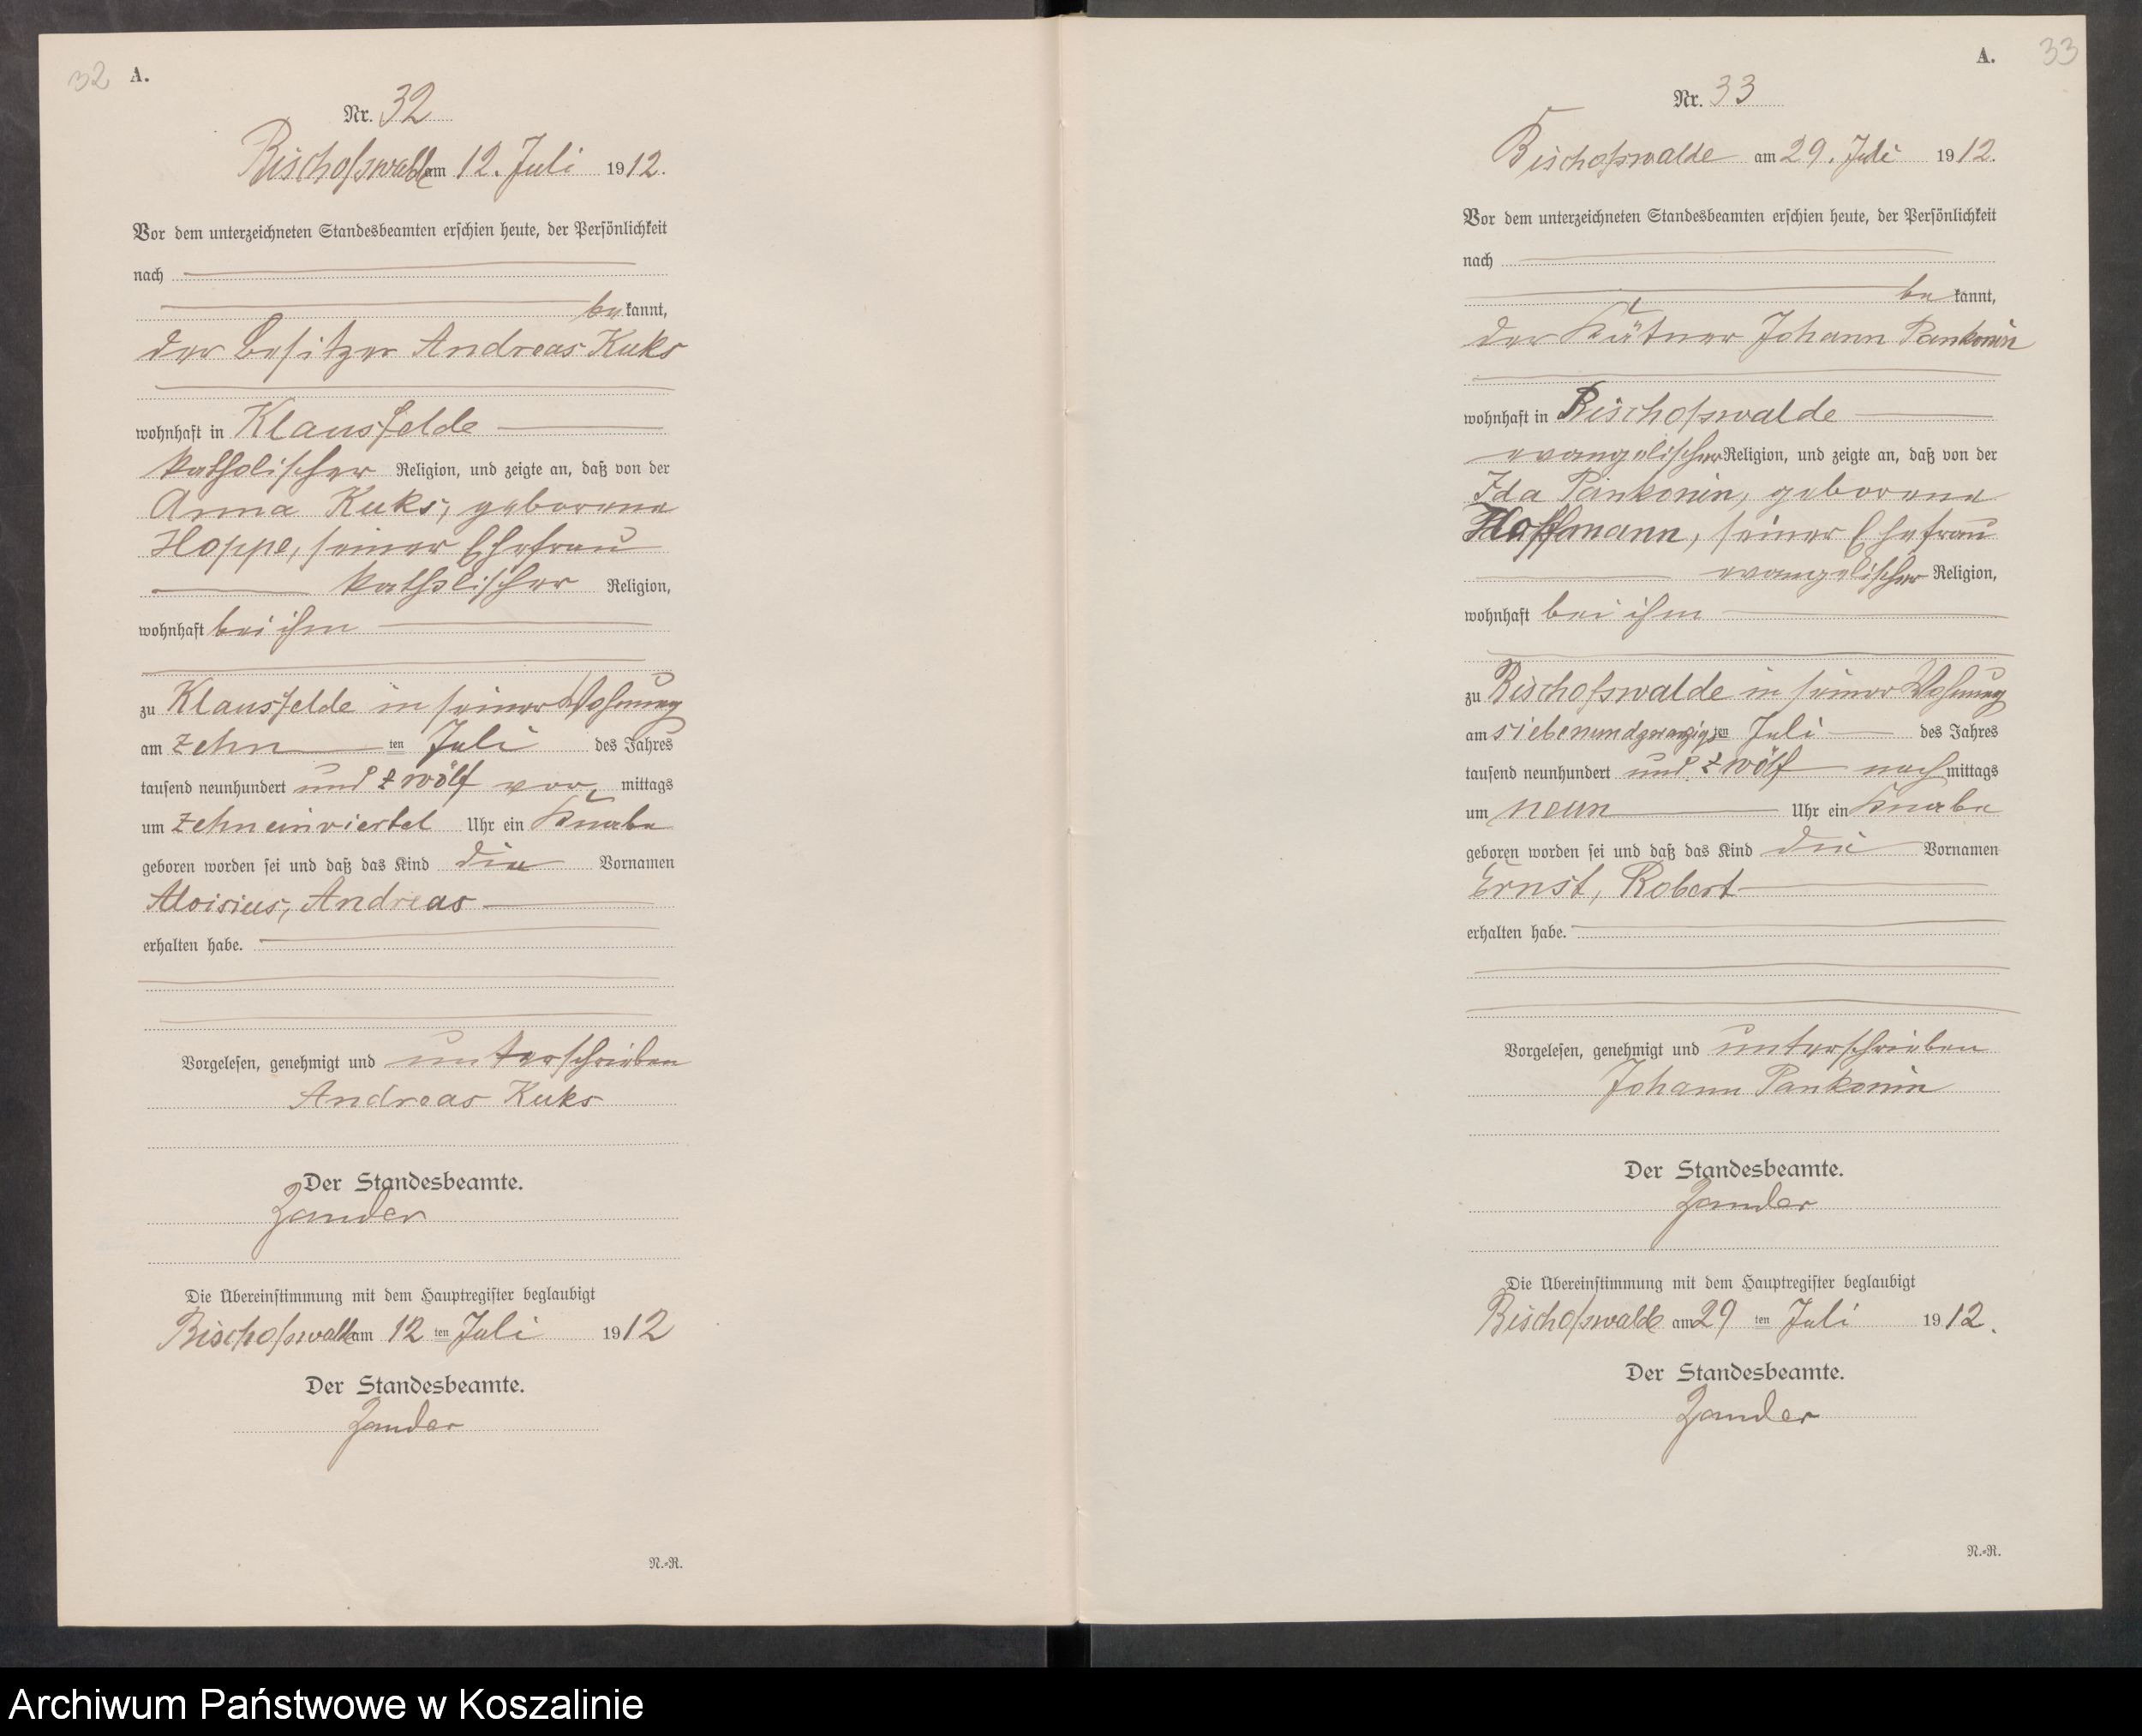 32 A.
Nr. 32
Bischofswalde am 12. Juli 1912.
Vor dem unterzeichneten Standesbeamten erschien heute, der Persönlichkeit
nach
be kannt,
der Besitzer Andreas Kuks
wohnhaft in Klausfelde
katholischer Religion, und zeigte an, daß von der
Anna Kuks, geborene
Hoppe, seiner Ehefrau
katholischer Religion,
wohnhaft bei ihm
zu Klausfelde in seiner Wohnung
am zehn ten Juli des Jahres
tausend neunhundert und zwölf vor mittags
um zehneinviertel Uhr ein Knabe
geboren worden sei und daß das Kind die Vornamen
Aloisius, Andreas
erhalten habe.
Vorgelesen, genehmigt und unterschrieben
Andreas Kuks
Der Standesbeamte.
Zander
Die Übereinstimmung mit dem Hauptregister beglaubigt
Bischofswalde am 12 ten Juli 1912
Der Standesbeamte.
Zander
N.-R.
A. 33
Nr. 33
Bischofswalde am 29. Juli 1912.
Vor dem unterzeichneten Standesbeamten erschien heute, der Persönlichkeit
nach
be kannt,
der Kätner Johann Pankonin
wohnhaft in Bischofswalde
evangelischer Religion, und zeigte an, daß von der
Ida Pankonin, geborene
Hoffmann, seiner Ehefrau
evangelischer Religion,
wohnhaft bei ihm
zu Bischofswalde in seiner Wohnung
am siebenundzwanzigs ten Juli des Jahres
tausend neunhundert und zwölf nach mittags
um neun Uhr ein Knabe
geboren worden sei und daß das Kind die Vornamen
Ernst, Robert
erhalten habe.
Vorgelesen, genehmigt und unterschrieben
Johann Pankonin
Der Standesbeamte.
Zander
Die Übereinstimmung mit dem Hauptregister beglaubigt
Bischofswalde am 29 ten Juli 1912.
Der Standesbeamte.
Zander
N.-R.
Archiwum Państwowe w Koszalinie